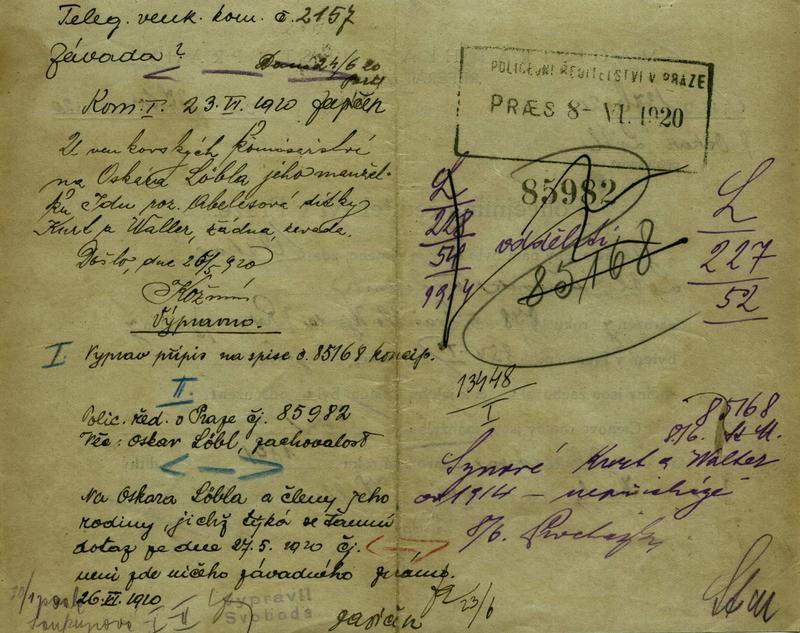 Teleg. venk. kom. č. 2157
Závada?
Dano 24/6 20
Kom. I. 23.VI. 1920 Japčan
U venkovských komisařství
na Oskara Löbla jeho manžel-
ku Idu roz. Abelesová dítky
Kurt a Walter, žádná závada.
Došlo, dne 26/5 920
Výpravno.
I. Vyprav přípis na spise č. 85168 koncip.
II.
Polic. řed. v Praze čj. 85982
Věc: Oskar Löbl, zachovalost
Na Oskara Löbla a členy jeho
rodiny, jichž týká se tamní
dotaz ze dne 27.5. 1920 čj.
není zde ničeho závadného známo.
26.VI. 1920
Vypravil
Svoboda
Japčan
23/6
POLICEJNÍ ŘEDITELSTVÍ V PRAZE
PRÆS 8- VI. 1920
85982
L
228
54
1914
oddělstí
85168
L
227
52
13448
I
85168
8./6.
Synové Kurt a Walter
od 1914 – nepřichází
8/6. Procházka